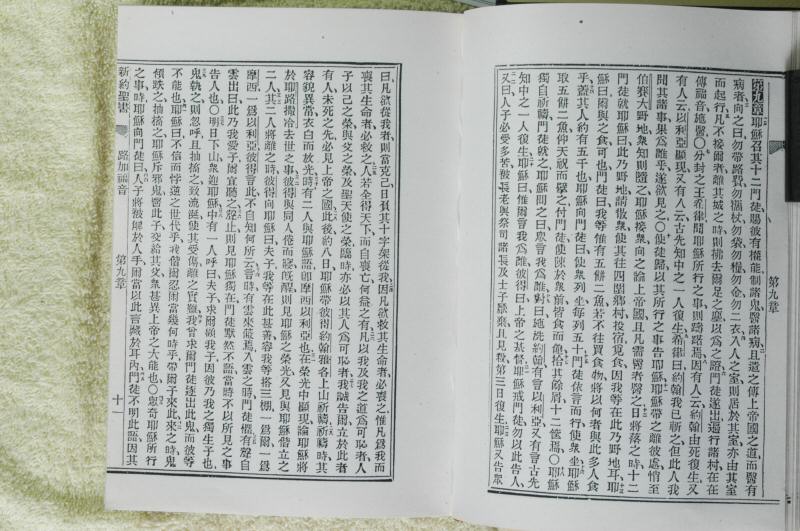 第九章耶穌召其十二門徒賜彼有權能制諸鬼醫諸病且遣之傳上帝國之道而醫有
病者向之曰勿帶路費勿攜杖勿袋勿糧勿金勿二衣入人之室則居於其室亦由其室
而起行凡不接爾者離其城之時則拂去爾足之塵以爲之證門徒遂出遍行諸村在在
傳福音施醫○分封之王希律聞耶穌所行之事則躊躇焉因有人云約翰由死復生又
有人云以利亞顯現又有人云古先知中之一人復生希律曰約翰我已斬之但此人我
聞其諸事果爲誰乎遂欲見之○使徒歸以其所行之事告耶穌耶穌帶之離彼處悄至
伯賽大野地衆知則隨之耶穌接衆向之論上帝國且凡需醫者醫之日將落之時十二
門徒就耶穌曰此乃野地請散衆使其往四圍鄉村投宿覓食因我等在此乃野地耳耶
穌曰爾與之食可也門徒曰我等惟有五餅二魚若不往買食物將以何者與此多人食
乎蓋其人約有五千也耶穌向門徒曰使衆列坐每列五十門徒依言而行使衆坐耶穌
取五餅二魚仰天祝而擘之付門徒使陳於衆前皆食而飽拾其餘屑十二筐焉○耶穌
獨自祈禱門徒就之耶穌問之曰衆言我爲誰對曰施洗約翰有言以利亞又有言古先
知中之一人復生耶穌曰惟爾言我爲誰彼得曰上帝之基督耶穌戒門徒勿以此告人
又曰人子必受多苦被長老與祭司諸長及士子厭棄且見殺第三日復生耶穌又告衆
第九章
曰凡欲從我者則當克己日負其十字架從我因凡欲救其生命者必喪之惟凡爲我而
喪其生命者必救之人若全得天下而自喪亡何益之有凡以我及我之道爲可恥者人
子以己之榮與父之榮及聖天使之榮臨時亦必以其人爲可恥者我誠告爾立於此者
有人未死之先必見上帝之國此後約八日耶穌帶彼得約翰雅各上山祈禱祈禱時其
容貌異常衣白而放光時有二人與耶穌語卽摩西以利亞也在榮光中顯現論耶穌將
於耶路撒冷去世之事彼得與同人倦而寢旣醒則見耶穌之榮光又見與耶穌偕立之
二人其二人將離之時彼得向耶穌曰夫子我等在此甚善容我等搭三棚一爲爾一爲
摩西一爲以利亞彼得言此不自知何所云言時有雲來蔽焉入雲之時門徒懼有聲自
雲出曰此乃我愛子爾宜聽之聲止則見耶穌獨在門徒默然不語當時不以所見之事
告人也○明日下山衆迎耶穌中有一人呼曰夫子求爾顧我子因彼乃我之獨生子也
鬼執之則忽呼且抽搐之致流涎使其受傷離之實難我曾求爾門徒逐出此鬼而彼等
不能也耶穌曰不信而悖逆之世代乎我偕爾忍爾當幾何時乎帶爾子來此來之時鬼
傾跌之抽搐之耶穌斥邪鬼醫此子交給其父衆甚異上帝之大能也○衆奇耶穌所行
之事時耶穌向門徒曰人子將被賣於人手爾當以此言藏於耳內門徒不明此語因其
新約聖書 路加福音 第九章 十一